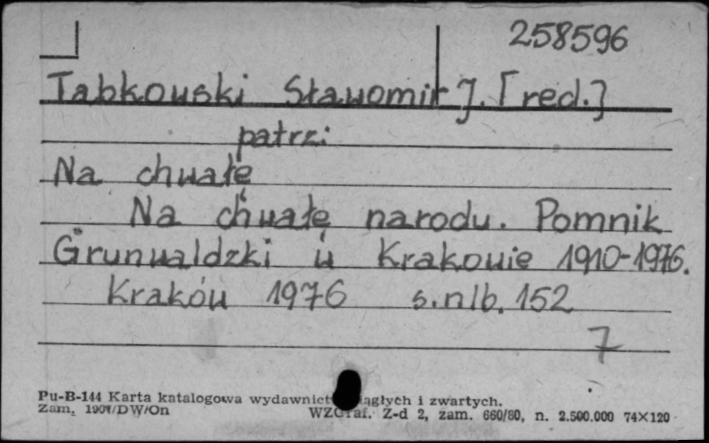 258596
Tabkowski Sławomir J. [red.]
patrz:
Na chwałę
Na chwałę narodu. Pomnik
Grunwaldzki w Krakowie 1910-1976.
Kraków 1976 s.nlb. 152
7
Pu-B-144 Karta katalogowa wydawnictw ciągłych i zwartych.
Zam. DW/On WZGraf. Z-d 2, zam. 660/80, n. 2.500.000 74×120